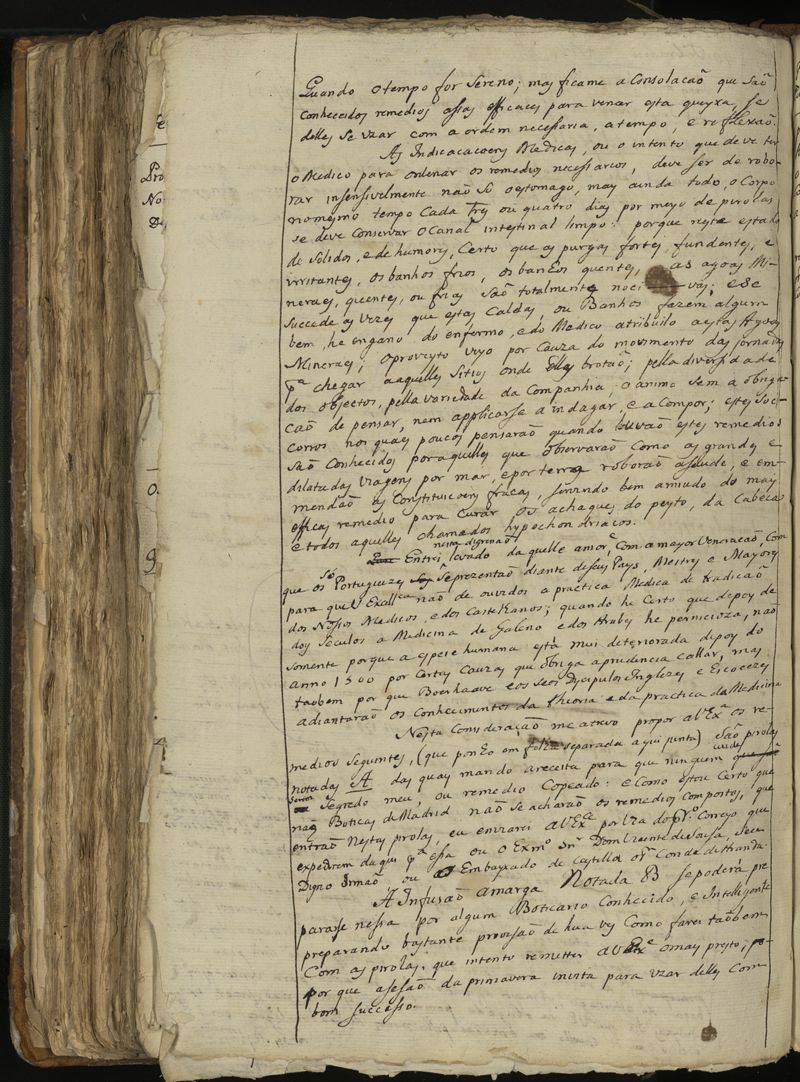 Quando o tempo for sereno; mas ficame a Consolacaõ que saõ
Conhecidos remedios assas efficaces para vencer esta queyxa, se
delles se uzar com a ordem necessaria, a tempo, e reflexaõ.
As Indicacacoens Medicas, ou o intento que deve ter
o Medico para ordenar os remedios necessarios, deve ser de robo-
rar insensivelmente naõ só o estomago, mas ainda todo, o Corpo
no mesmo tempo Cada tres ou quatro dias por meyo de pirolas
se deve Conservar o Canal intestinal limpo: porque neste estado
de solidos, e de humores, Certo que as purgas fortes, fundentes, e
irritantes, os banhos frios, os banhos quentes, as agoas Mi-
neraes, quentes, ou frias saõ totalmente noci vas; e se
succede as vezes que estas Caldas, ou Banhos fazem algum
bem, he engano do enfermo, e do Medico atribuilo a estas Agoas
Mineraes; o proveyto veyo por Cauza do movimento das jornadas
pª chegar a aquelles sitios onde ellas brotaõ; pella diversidade
dos objectos, pella variedade da Companhia, o animo sem a obriga-
caõ de pensar, nem applicarse a indagar, e a Compor; estes soc-
corros nos quaes poucos pensaraõ quando louvaõ estes remedios
saõ Conhecidos por aquelles que observaraõ Como as grandes e
dilatadas viagens por mar, e por terra roboraõ a saude, e em-
mendaõ as Constituicoens fracas, servindo bem amiudo do mais
efficas remedio para Curar os achaques do peyto, da Cabeca
e todos aquelles chamados hypochondriacos.
nesta digressaõ
Entrei levado da quelle amor, Com a mayor Veneracaõ, Com
que os Portuguezes só se prezentaõ diante de seus Pays, Mestres e Mayores
para que V. Excellca naõ de ouvidos a practica Medica de tradicaõ
dos Nossos Medicos, e dos Castelhanos; quando he Certo que depoy de
dos seculos a Medicina de Galeno e dos Arabes he pernicioza, naõ
somente porque a especie humana está mui deteriorada depoy do
anno 1500 por Certas Cauzas que obriga a prudencia callar, mas
taõbem por que Boerhaave e os seos Discipulos Inglezes e Escocezes
adiantaraõ os Conhecimentos da theoria e da practica da Medicina
Nesta Consideraçaõ me atrevo propor a V. Exª os re-
medios seguintes, (que ponho em folha separada aqui junta) saõ pirolas
notadas A das quaes mando a receita para que ninguem cuide
segredo meu, ou remedio Copeado: e Como estou Certo que
nas Boticas de Madrid naõ se acharaõ os remedios Compostos, que
entraõ nestas pirolas, eu enviarei a V. Exª por via do pr.º Correyo que
expedirem daqui pª essa ou o Exmº Snr Dom Vicente de Sousa, seu
Digno Irmaõ, ou o Embayxador de Castella o Snr Conde de Aranda.
A Infusaõ amarga Notada B se poderá pre
pararse nessa por algum Boticario Conhecido, e Intelligente
preparando bastante provisaõ de hua vez Como farei taõbem
Com as pirolas, que intento remetter a V. Exª o mais presto,
por que a sesaõ da primavera incita para uzar dellas Com
bom successo.